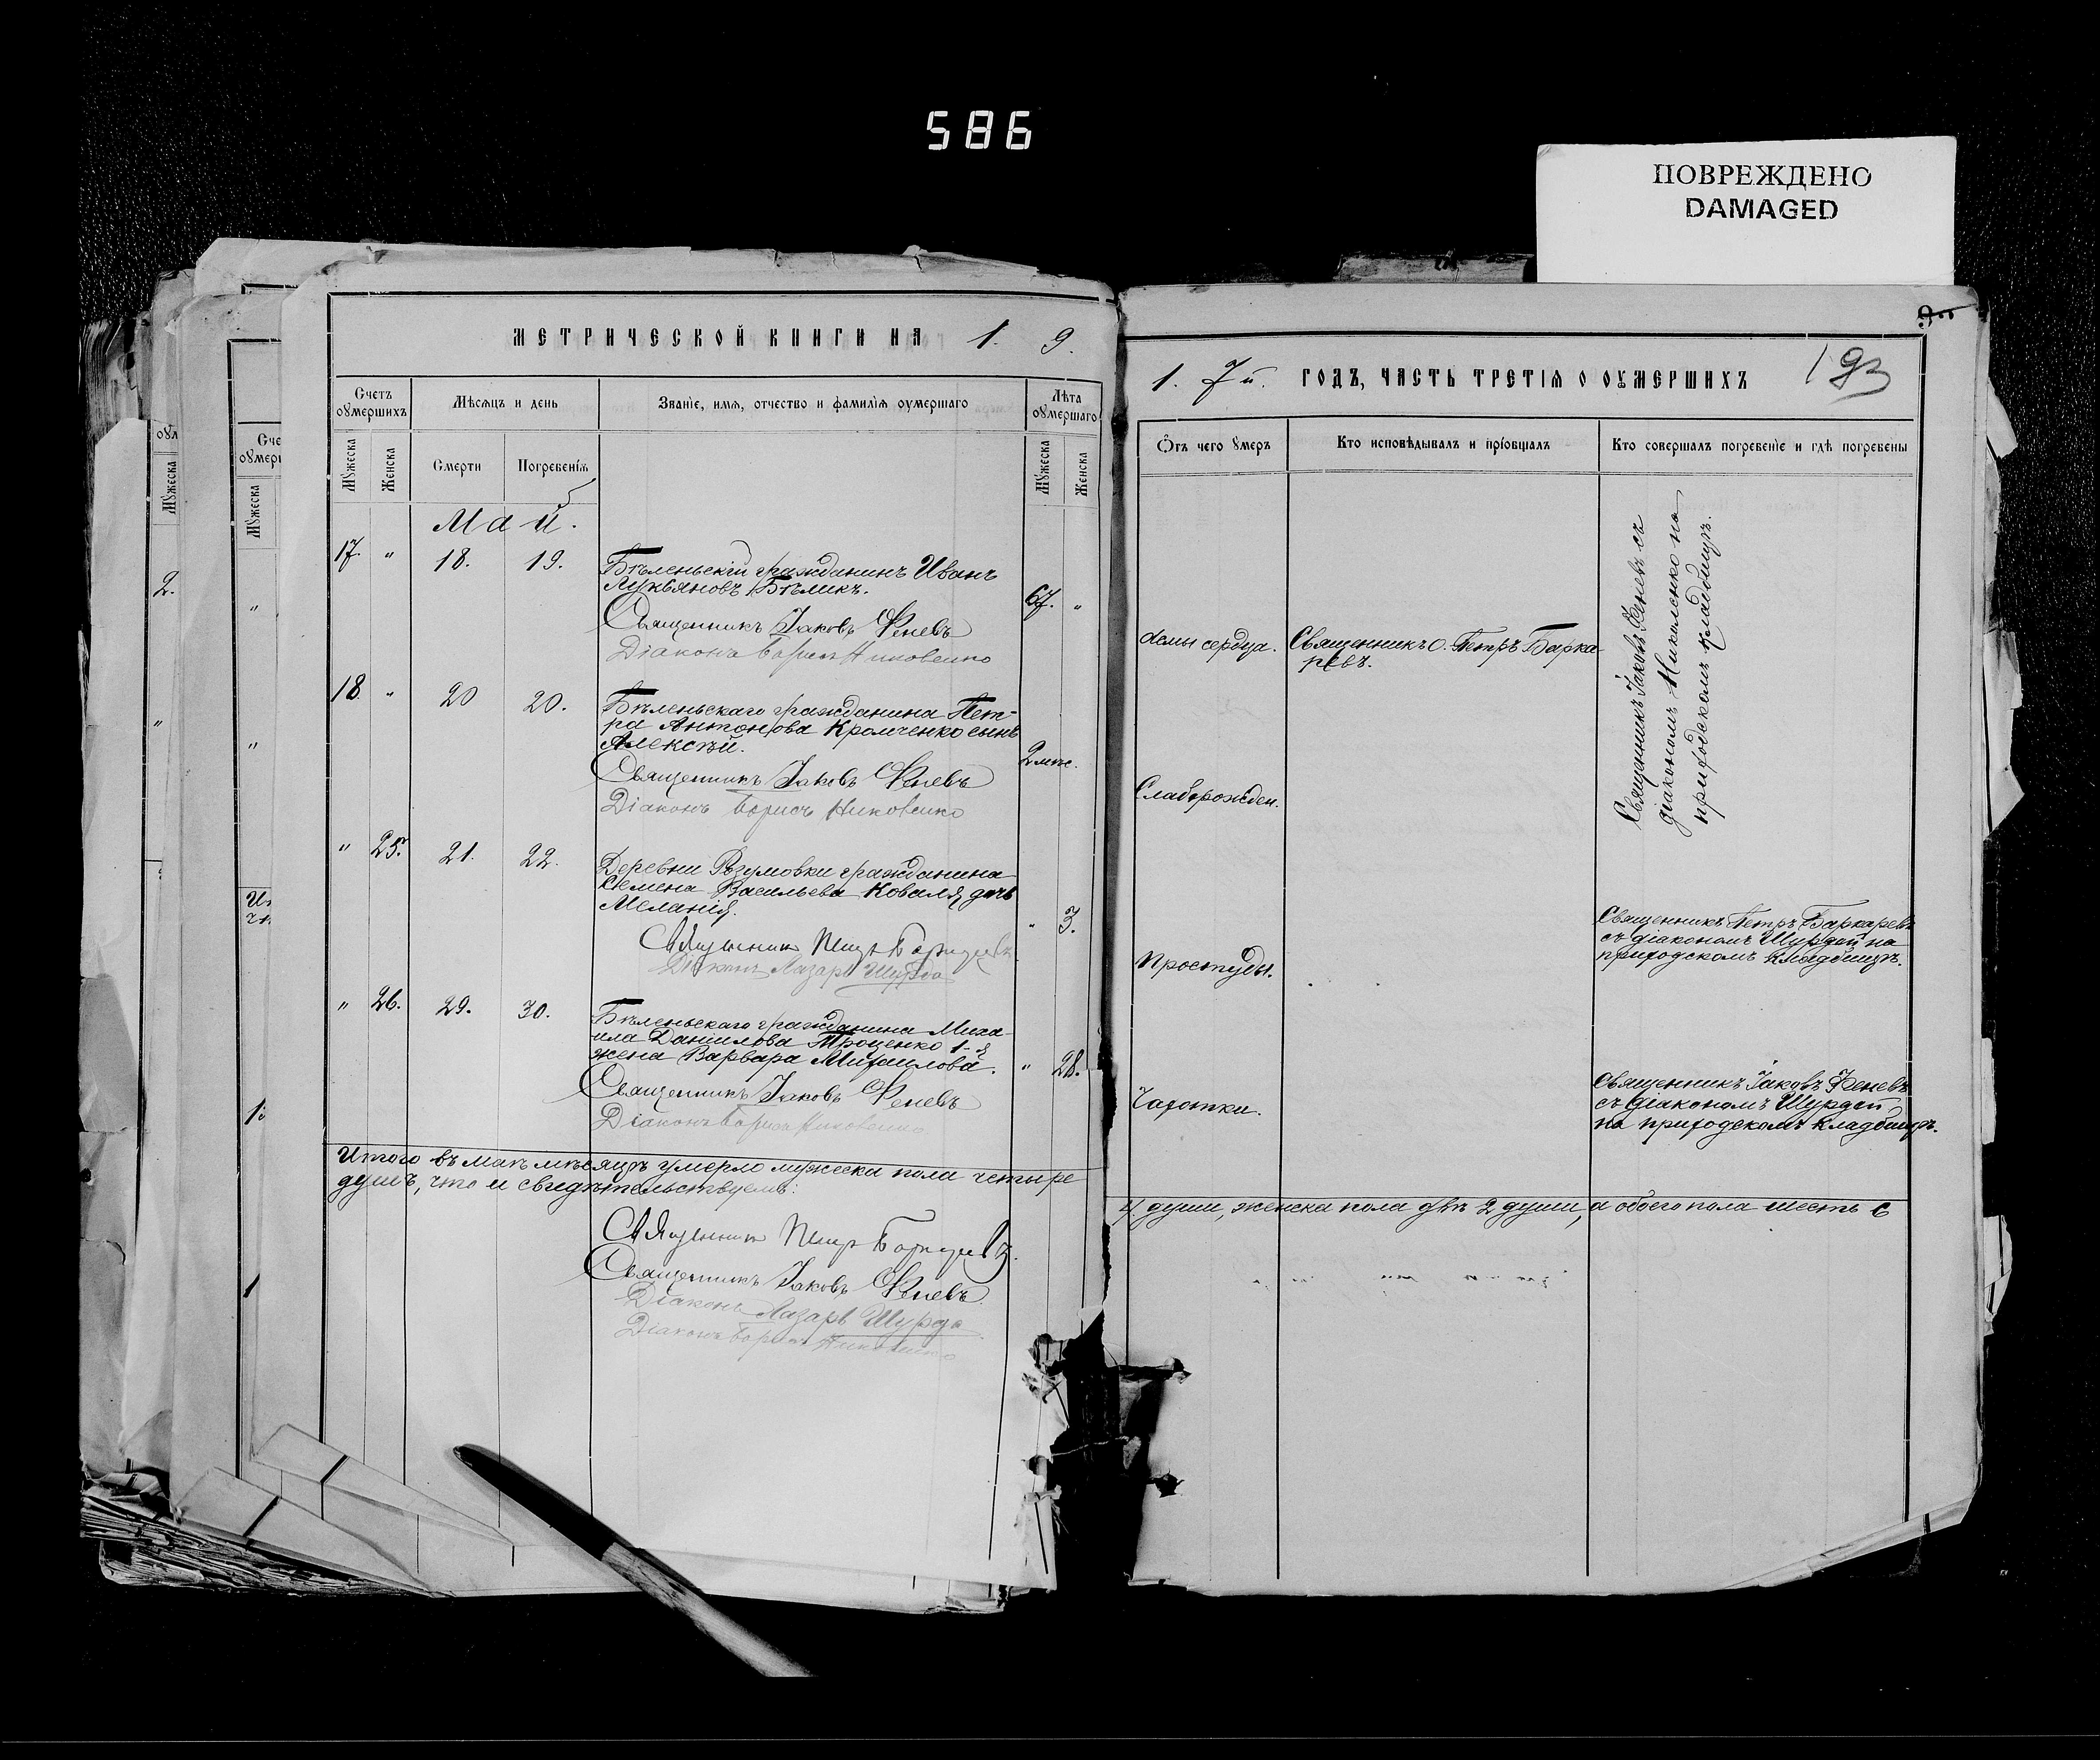 586
ПОВРЕЖДЕНО
DAMAGED
МЕТРИЧЕСКОЙ КНИГИ НА 1. 9.
Счетъ оумершихъ
Мѣсяцъ и день
Званіе, имя, отчество и фамилія оумершаго
Лѣта оумершаго
Мужеска
Женска
Смерти
Погребенія
Мужеска
Женска
Май.
17. " 18. 19. Бѣленьскій гражданинъ Иванъ
Лукьяновъ Бѣликъ. 67. "
Священникъ Іаковъ Феневъ
Діаконъ Борисъ Никовенко
18 " 20 20. Бѣленьскаго гражданина Пет-
ра Антонова Кромченко сынъ
Алексѣй. 2 мѣс.
Священникъ Іаковъ Феневъ
Діаконъ Борисъ Никовенко
" 25. 21. 22. Деревни Розумовки гражданина
Семена Васильева Коваля дочь
Меланія. " 3.
Священникъ Петръ Баркаревъ
Діаконъ Лазарь Шурда
" 26. 29. 30. Бѣленьскаго гражданина Миха-
ила Даниилова Троценко 1-я
жена Варвара Михаилова. " 28.
Священникъ Іаковъ Феневъ
Діаконъ Борисъ Никовенко
Итого въ маѣ мѣсяцѣ умерло мужеска пола четыре
душъ, что и свидѣтельствуемъ:
Священникъ Петръ Баркаревъ.
Священникъ Іаковъ Феневъ.
Діаконъ Лазарь Шурда
Діаконъ Борисъ Никовенко
1. 7й. ГОДЪ, ЧАСТЬ ТРЕТІЯ О ОУМЕРШИХЪ
193
Отъ чего умеръ
Кто исповѣдывалъ и пріобщалъ
Кто совершалъ погребеніе и гдѣ погребены
сердца. Священникъ О. Петръ Барка-
ревъ.
Священникъ Іаковъ Феневъ съ
діакономъ Никовенко на
приходскомъ кладбищѣ.
Слаборожден.
Простуды.
Священникъ Петръ Баркаревъ
съ діакономъ Шурдой на
приходскомъ кладбищѣ.
Чахотки.
Священникъ Іаковъ Феневъ
съ діакономъ Шурдой
на приходскомъ кладбищѣ.
4 души, женска пола двѣ 2 души, а обоего пола шесть 6